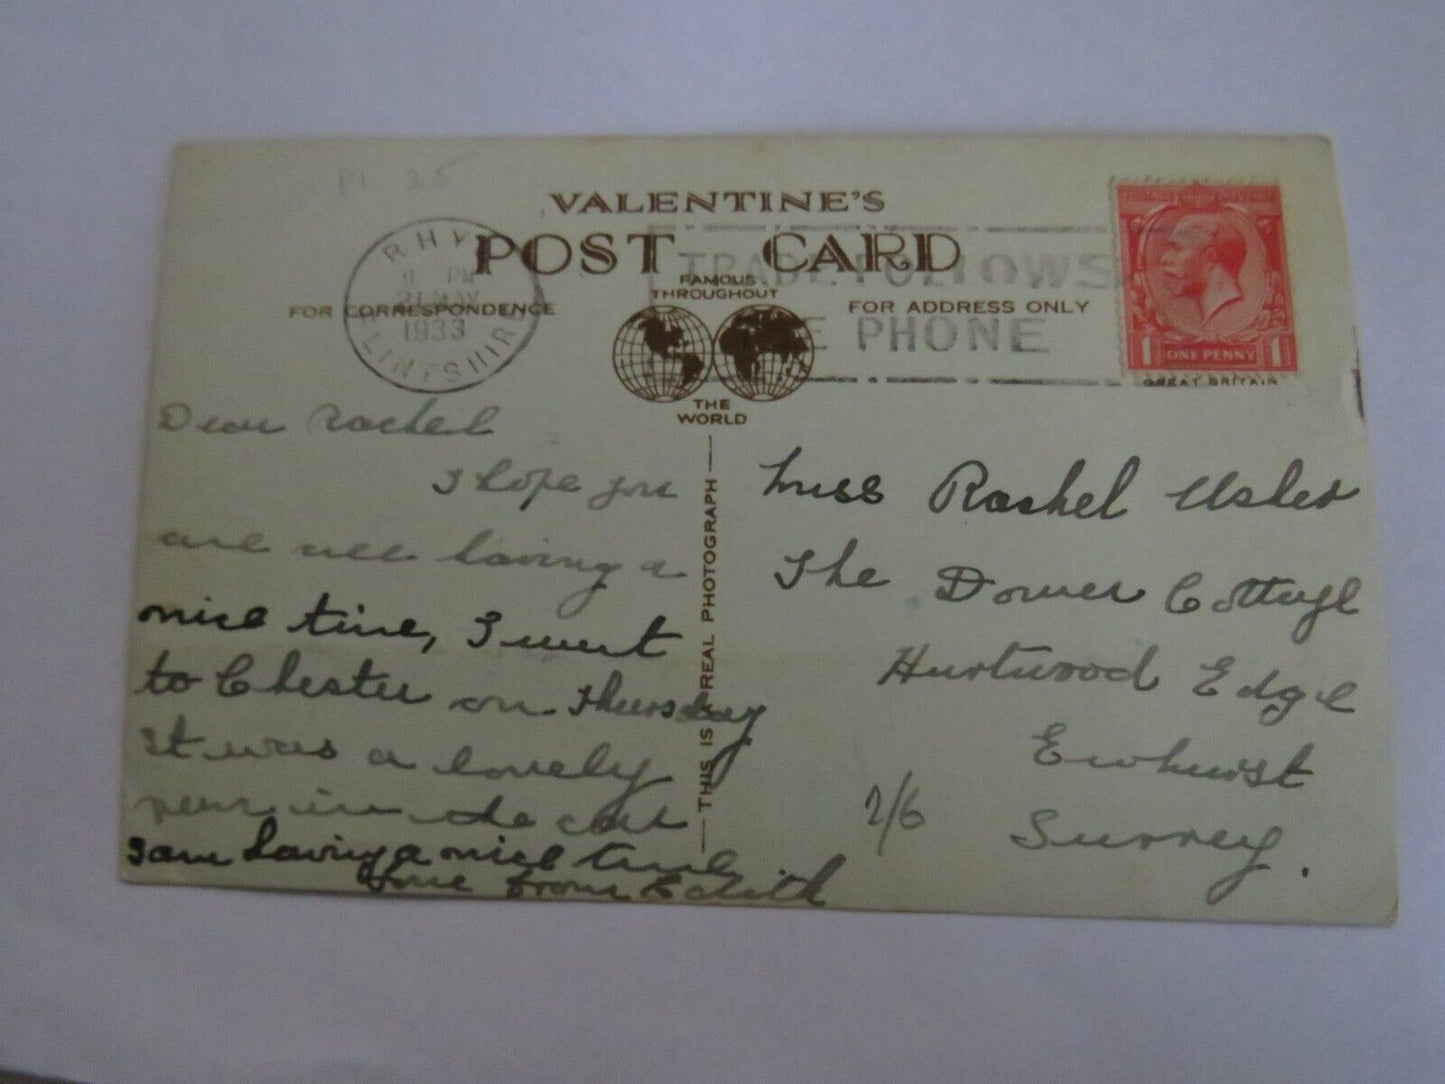 VALENTINE'S
POST CARD
FAMOUS
THROUGHOUT
THE
WORLD
FOR CORRESPONDENCE
FOR ADDRESS ONLY
RHYL
9 PM
21 MAY
1933
FLINTSHIRE
TRADE FOLLOWS
THE PHONE
1 ONE PENNY 1
GREAT BRITAIN
THIS IS A REAL PHOTOGRAPH
Dear Rachel
I hope you
are all having a
nice time, I went
to Chester on Thursday
it was a lovely
in the car
I am having a nice time
love from Edith
Miss Rachel Usher
The Dower Cottage
Hurtwood Edge
Ewhurst
Surrey.
2/6